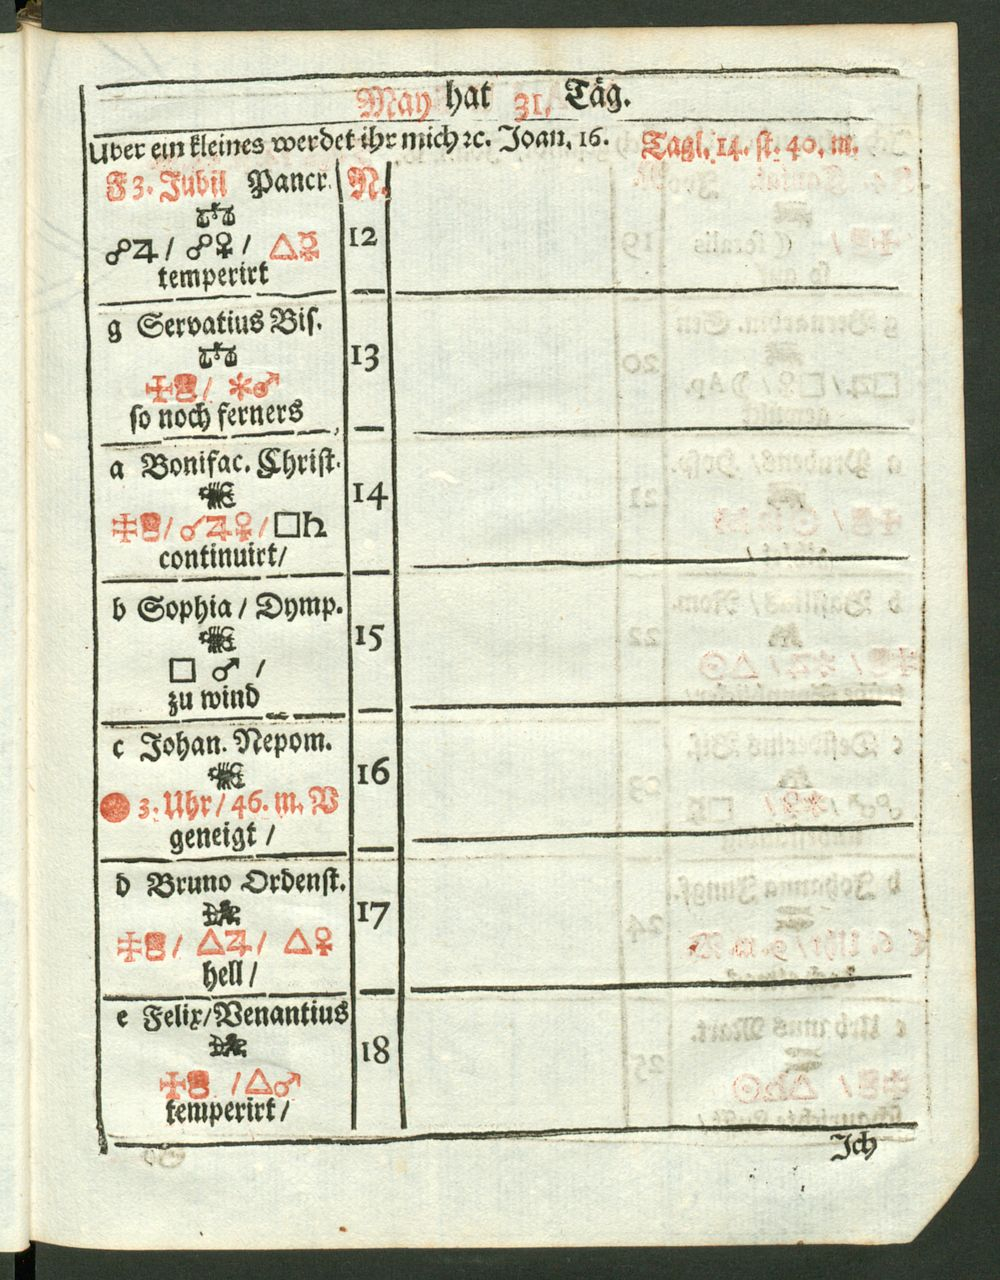 May hat 31. Täg.
Uber ein kleines werdet ihr mich ꝛc. Joan. 16. Tagl. 14. st. 40. m.
F 3. Jubil Pancr. N.
☍♃ / ☍♀ / △☿ 12
temperirt
g Servatius Bis.
13
/ ✱♂
so noch ferners
a Bonifac. Christ.
14
/ ☌♃♀ / □♄
continuirt /
b Sophia / Dymp.
15
□ ♂ /
zu wind
c Johan. Nepom.
16
3. Uhr / 46. m. V
geneigt /
d Bruno Ordenst.
17
/ △♃ / △♀
hell /
e Felix / Venantius
18
/ △♂
temperirt /
Ich